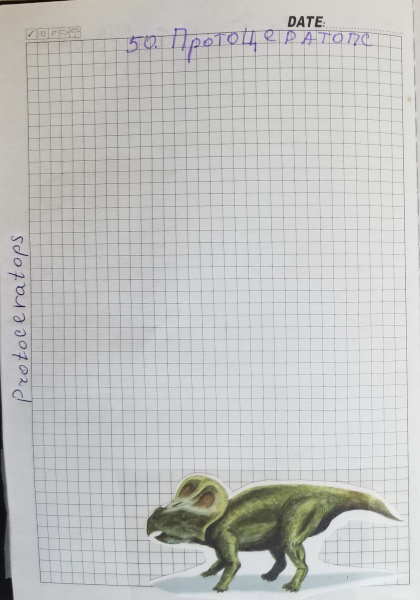 DATE:
50. Протоцератопс
Protoceratops